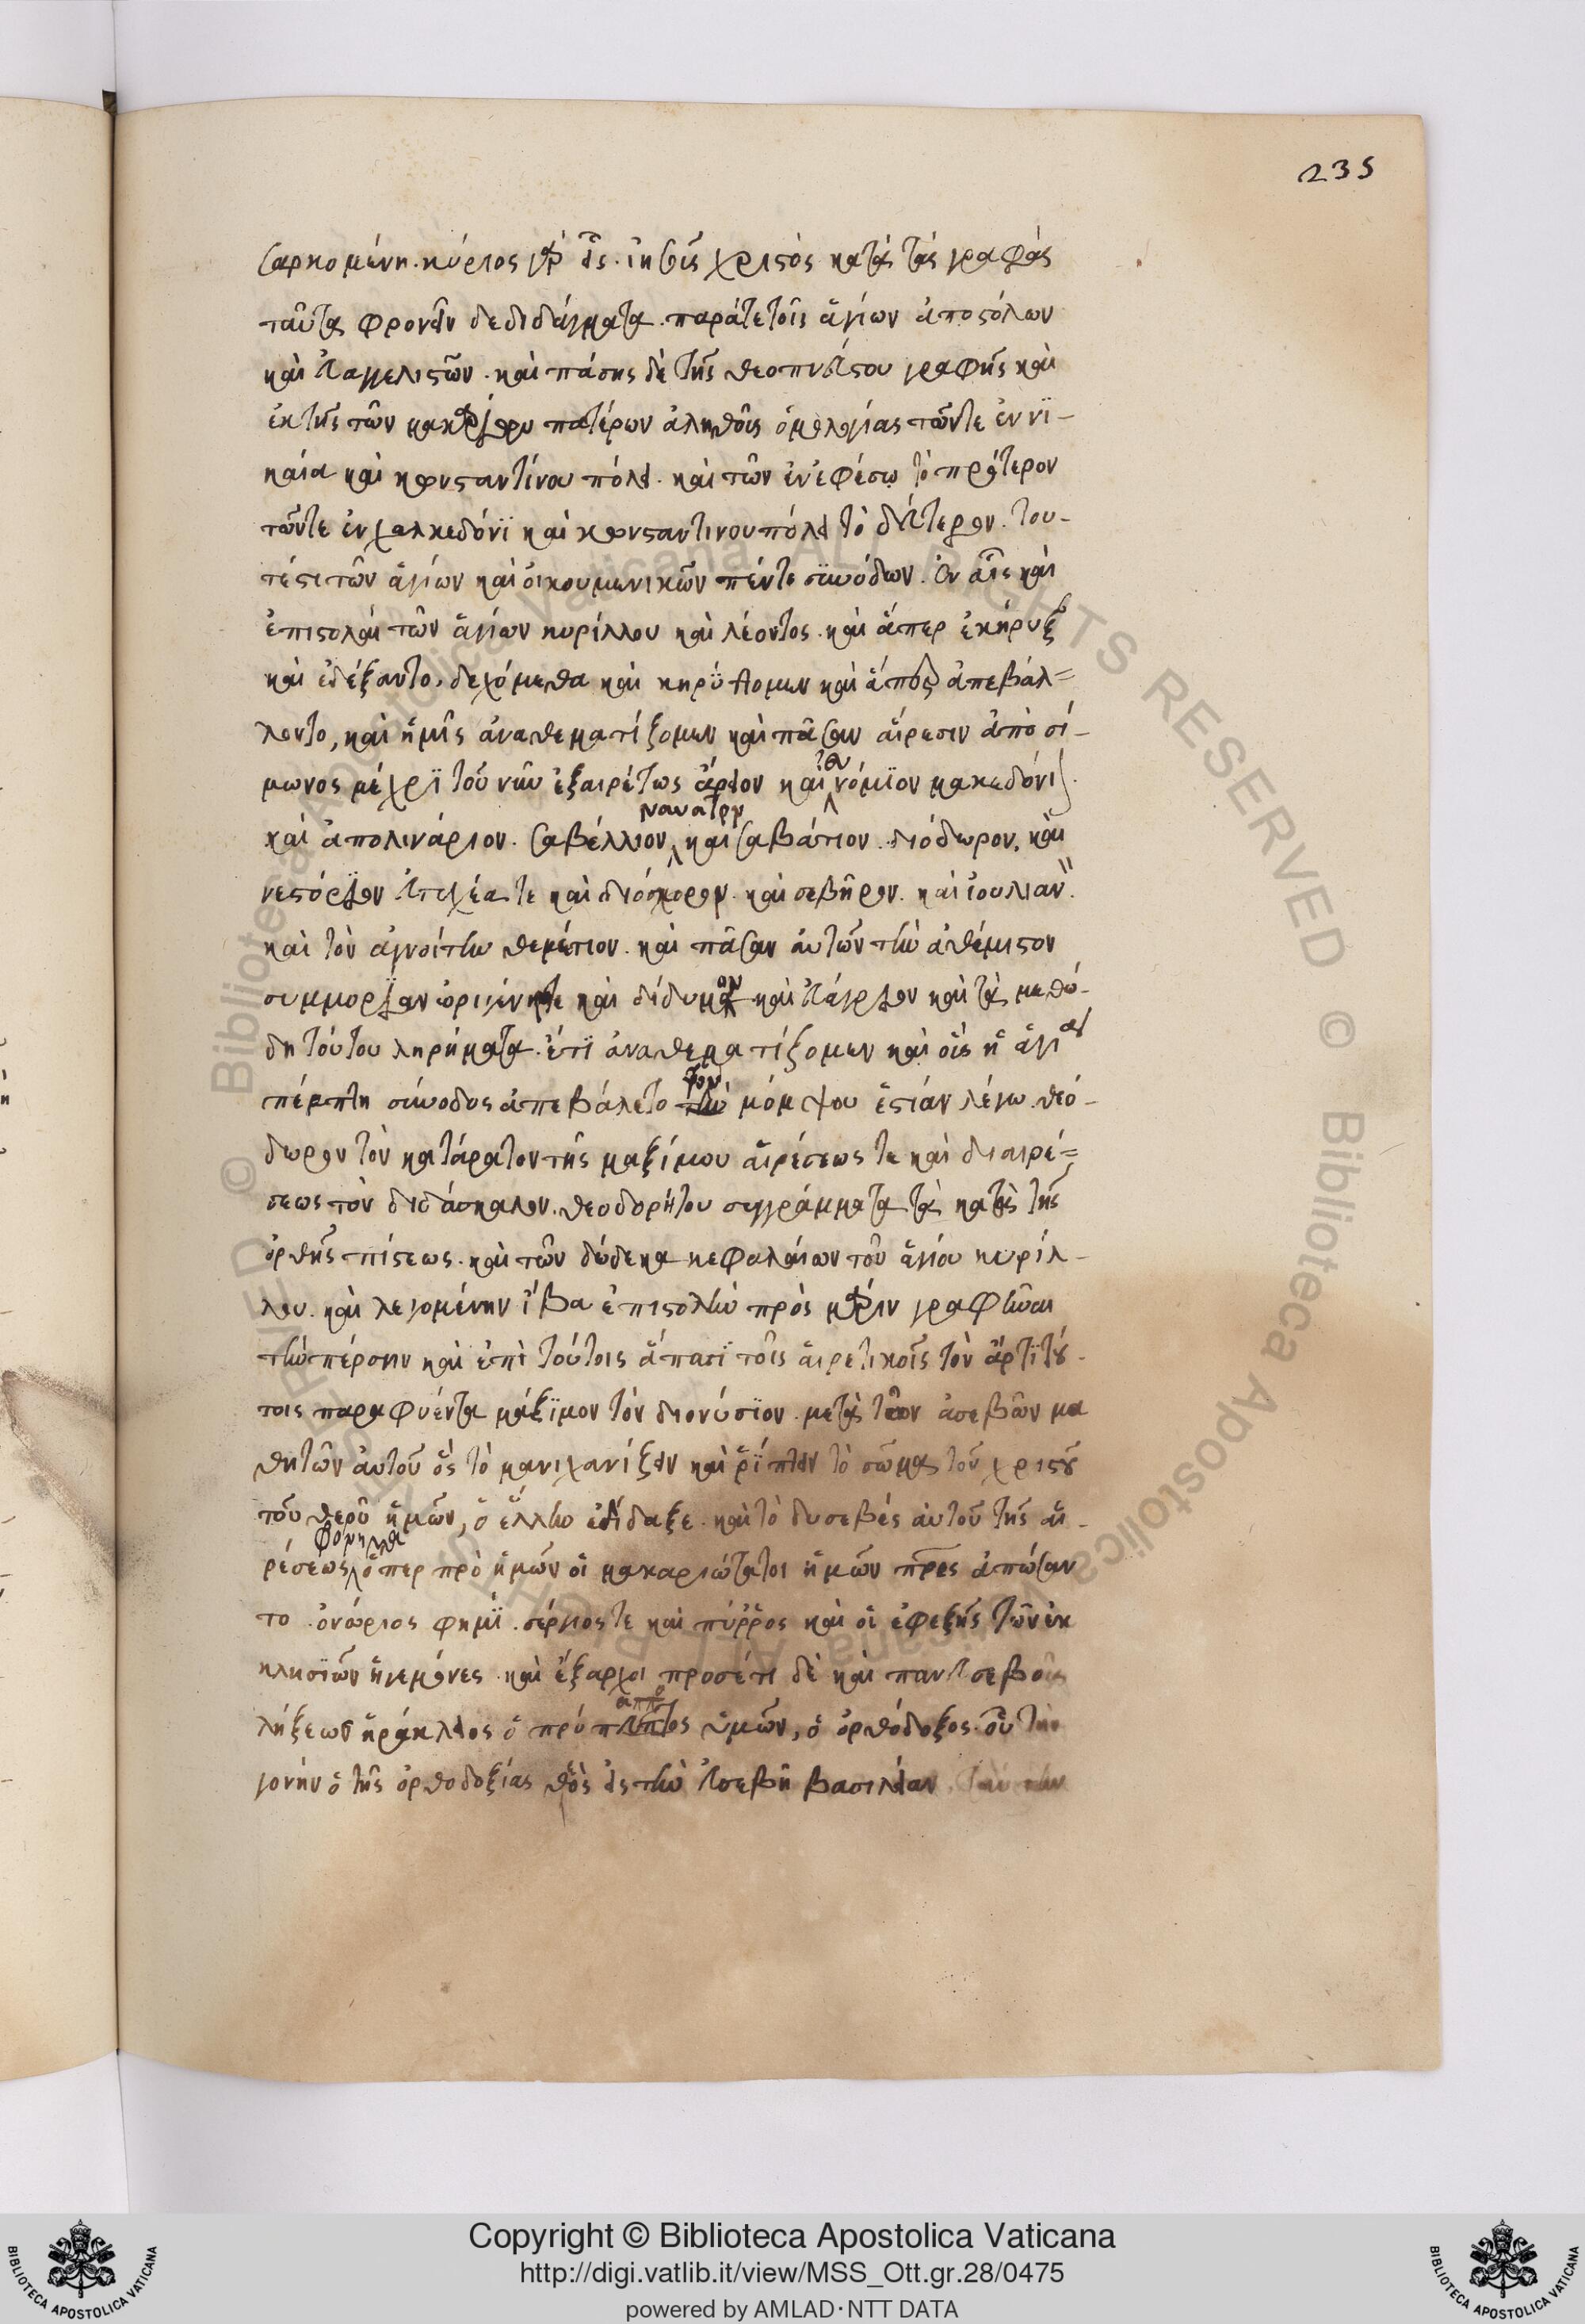 235
σαρκομένη. κύριος γὰρ εἷς. ἰησοῦς χριστὸς κατὰ τὰς γραφὰς
ταῦτα φρονεῖν δεδιδάγματα. παράτετοῖς ἁγίων ἀποστόλων
καὶ εὐαγγελιστῶν. καὶ πάσης δὲ τῆς θεοπνεύστου γραφῆς καὶ
ἐκ τῆς τῶν μακαρίων πατέρων ἀληθοῖς ὁμολογίας τῶντε ἐν νϊ-
καία καὶ κονσταντίνου πόλει. καὶ τῶν ἐν ἐφέσῳ τὸ πρότερον
τῶντε ἐν χαλκεδόνϊ καὶ κονσταντινουπόλει τὸ δεύτερον. του-
τέστι τῶν ἁγίων καὶ οἰκουμενικῶν πέντε συνόδων. ἐν αἷς καὶ
ἐπιστολαὶ τῶν ἁγίων κυρίλλου καὶ λέοντος. καὶ ἅπερ ἐκήρυξ
καὶ ἐδέξαντο, δεχόμεθα καὶ κηρύττομεν καὶ ἅπερ ἀπεβάλ=
λοντο, καὶ ἡμεῖς ἀναθεματίζομεν καὶ πᾶσαν αἵρεσιν ἀπὸ σί-
μωνος μέχρϊ τοῦ νῦν ἐξαιρέτως ἄρειον καὶ εὐνόμϊον μακεδόνι
ναυατον
καὶ ἀπολινάριον. σαβέλλιον, καὶ σαβάτιον. διόδωρον, καὶ
νεστόριον εὐτυχέα τε καὶ διόσκορον. καὶ σεβῆρον. καὶ ἰουλιαν.
καὶ τὸν ἀγνοίτην θεμέτιον. καὶ πᾶσαν αὐτῶν τὴν ἀθέμιστον
συμμορίαν ὡριγένη τε καὶ δίδυμον καὶ εὐάγριον καὶ τὰ μυθώ-
δη τούτου ληρήματα. ἔτϊ ἀναθεματίζομεν καὶ οἷς ἡ ἁγία
πέμπτη σύνοδος ἀπεβάλετο τὸν μόμψου ἑστίαν λέγω. θεό-
δωρον τὸν κατάρατον τῆς μαξίμου αἱρέσεως τε καὶ διαιρέ=
σεως τὸν διδάσκαλον. θεοδορήτου συγγράμματα τὰ κατὰ τῆς
ὀρθῆς πίστεως. καὶ τῶν δώδεκα κεφαλαίων τοῦ ἁγίου κυρίλ-
λου. καὶ λεγομένην ἴβα ἐπιστολὴν πρὸς μάριν γραφῆναι
τὴν πέρσην καὶ ἐπὶ τούτοις ἅπασϊ τοῖς αἱρετικοῖς τὸν ἄρτϊ τού-
τοις παραφυέντα μάξϊμον τὸν διονύσϊον. μετὰ τῶν ἀσεβῶν μα
θητῶν αὐτοῦ ὃς τὸ μανιχανίζειν καὶ ῥίπτειν τὸ σῶμα τοῦ χριστοῦ
τοῦ θεοῦ ἡμῶν, ὁ ἕλλην ἐδίδαξε. καὶ τὸ δυσεβές αὐτοῦ τῆς αἱ-
φόρημα
ρέσεως ὅπερ πρὸ ἡμῶν οἱ μακαριώτατοι ἡμῶν πρες ἀπώσαν
το. ὀνώριος φημϊ. σέργιος τε καὶ πύῤῥος καὶ οἱ ἐφεξῆς τῶν ἐκ
κλησϊῶν ἡγεμόνες. καὶ ἔξαρχοι προσέτι δὲ καὶ πανευσεβοῦς
λήξεως ἡράκλειος ὁ πρόπαππος ὑμῶν, ὁ ὀρθόδοξος. οὗ τὴν
γονὴν ὁ τῆς ὀρθοδοξίας θεὸς εἰς τὴν εὐσεβῆ βασιλείαν
Copyright © Biblioteca Apostolica Vaticana
http://digi.vatlib.it/view/MSS_Ott.gr.28/0475
powered by AMLAD·NTT DATA